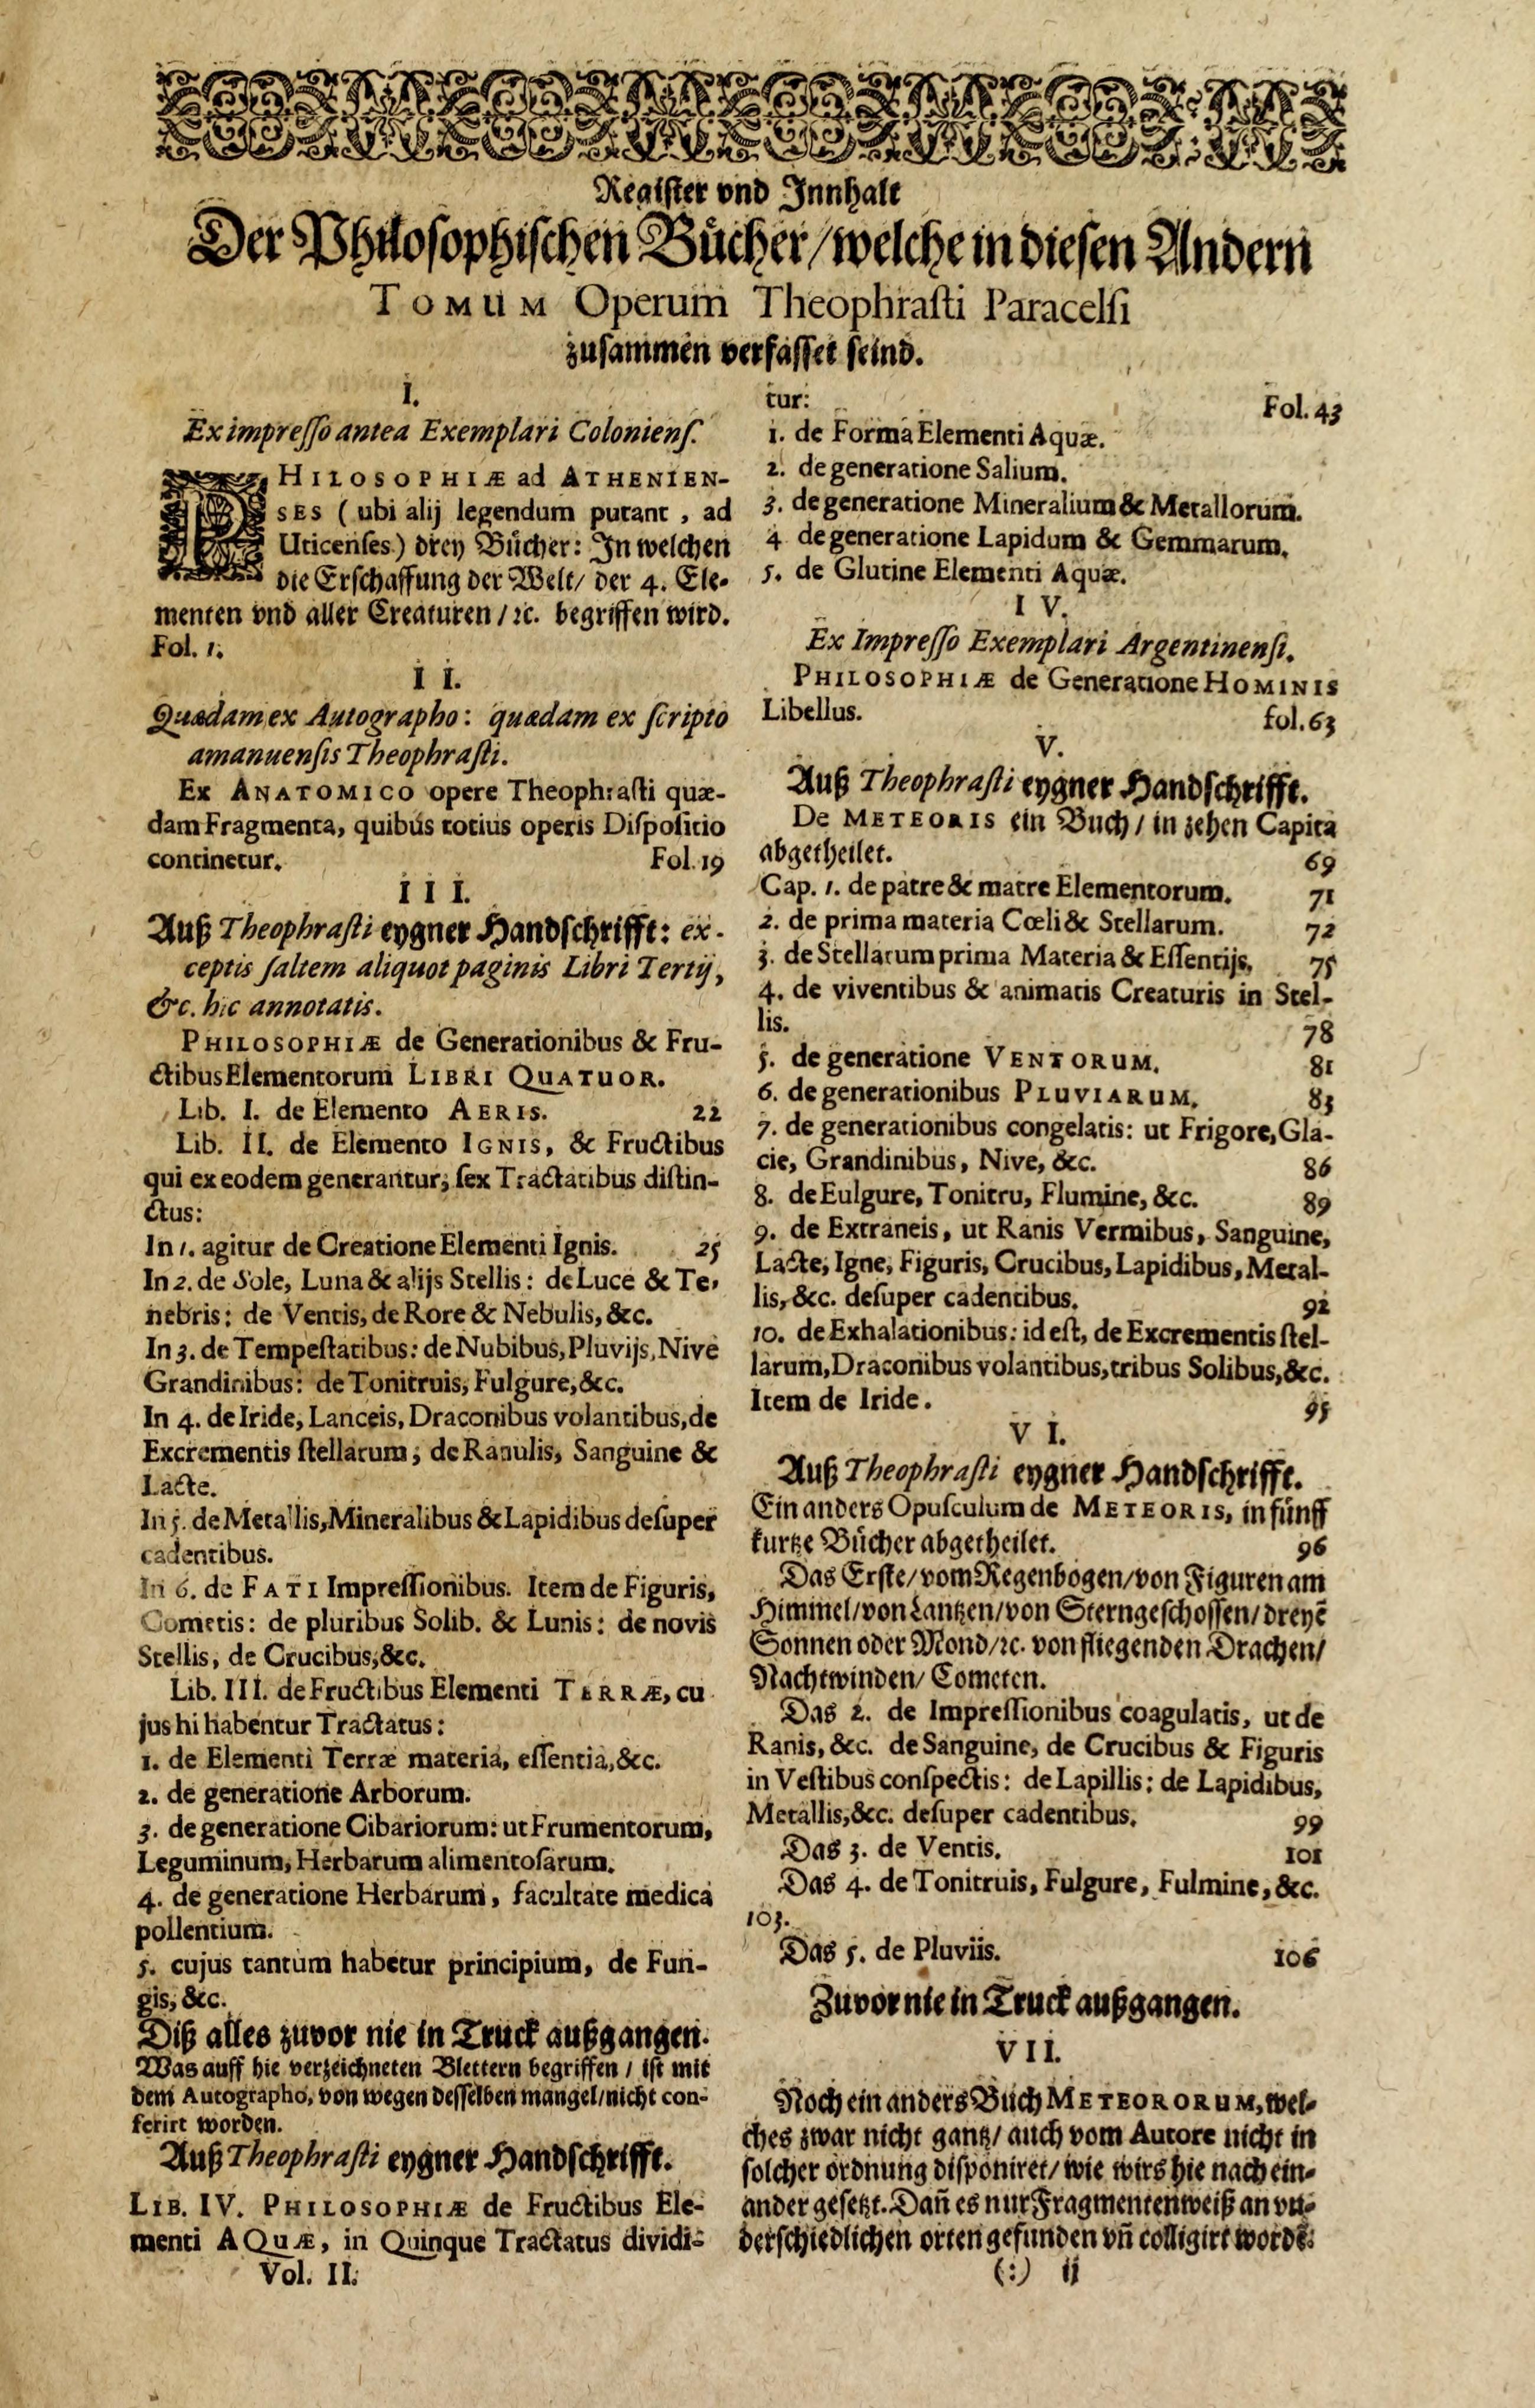 Register vnd Innhalt
Der Philosophischen Bücher/welche in diesen Andern
TOMUM Operum Theophrasti Paracelsi
zusammen verfasset seind.
I.
Ex impresso antea Exemplari Coloniens.
PHILOSOPHIÆ ad ATHENIEN-
SES ( ubi alij legendum putant , ad
Uticenses) drey Bücher: In welchen
die Erschaffung der Welt/ der 4. Ele-
menten vnd aller Creaturen /ꝛc. begriffen wird.
Fol. 1.
II.
Quædam ex Autographo: quædam ex scripto
amanuensis Theophrasti.
Ex ANATOMICO opere Theophrasti quæ-
dam Fragmenta, quibus totius operis Dispositio
continetur. Fol. 19
III.
Auß Theophrasti eygner Handschrifft: ex-
ceptis saltem aliquot paginis Libri Tertij,
&c. hic annotatis.
PHILOSOPHIÆ de Generationibus & Fru-
ctibus Elementorum LIBRI QUATUOR.
Lib. I. de Elemento AERIS. 22
Lib. II. de Elemento IGNIS, & Fructibus
qui ex eodem generantur, sex Tractatibus distin-
ctus:
In 1. agitur de Creatione Elementi Ignis. 25
In 2. de Sole, Luna & alijs Stellis: de Luce & Te-
nebris: de Ventis, de Rore & Nebulis, &c.
In 3. de Tempestatibus: de Nubibus, Pluvijs, Nive
Grandinibus: de Tonitruis, Fulgure, &c.
In 4. de Iride, Lanceis, Draconibus volantibus, de
Excrementis stellarum, de Ranulis, Sanguine &
Lacte.
In 5. de Metallis, Mineralibus & Lapidibus desuper
cadentibus.
In 6. de FATI Impressionibus. Item de Figuris,
Cometis: de pluribus Solib. & Lunis: de novis
Stellis, de Crucibus, &c.
Lib. III. de Fructibus Elementi TERRÆ, cu
jus hi habentur Tractatus:
1. de Elementi Terræ materia, essentia, &c.
2. de generatione Arborum.
3. de generatione Cibariorum: ut Frumentorum,
Leguminum, Herbarum alimentosarum.
4. de generatione Herbarum, facultate medica
pollentium.
5. cujus tantum habetur principium, de Fun-
gis, &c.
Diß alles zuvor nie in Truck außgangen.
Was auff hie verzeichneten Blettern begriffen / ist mit
dem Autographo, von wegen desselben mangel/nicht con-
ferirt worden.
Auß Theophrasti eygner Handschrifft.
LIB. IV. PHILOSOPHIÆ de Fructibus Ele-
menti AQUÆ, in Quinque Tractatus dividi-
Vol. II.
tur: Fol. 43
1. de Forma Elementi Aquæ.
2. de generatione Salium.
3. de generatione Mineralium & Metallorum.
4 de generatione Lapidum & Gemmarum.
5. de Glutine Elementi Aquæ.
IV.
Ex Impresso Exemplari Argentinensi.
PHILOSOPHIÆ de Generatione HOMINIS
Libellus. fol. 63
V.
Auß Theophrasti eygner Handschrifft.
De METEORIS ein Buch / in zehen Capita
abgetheilet. 69
Cap. 1. de patre & matre Elementorum. 71
2. de prima materia Cœli & Stellarum. 72
3. de Stellarum prima Materia & Essentijs. 75
4. de viventibus & animatis Creaturis in Stel-
lis. 78
5. de generatione VENTORUM. 81
6. de generationibus PLUVIARUM. 83
7. de generationibus congelatis: ut Frigore, Gla-
cie, Grandinibus, Nive, &c. 86
8. de Eulgure, Tonitru, Flumine, &c. 89
9. de Extraneis, ut Ranis Vermibus, Sanguine,
Lacte, Igne, Figuris, Crucibus, Lapidibus, Metal-
lis, &c. desuper cadentibus. 92
10. de Exhalationibus: id est, de Excrementis stel-
larum, Draconibus volantibus, tribus Solibus, &c.
Item de Iride. 95
VI.
Auß Theophrasti eygner Handschrifft.
Ein anders Opusculum de METEORIS, in fünff
kurtze Bücher abgetheilet. 96
Das Erste/ vom Regenbogen/von Figuren am
Himmel/von Lantzen/von Sterngeschossen/ dreyẽ
Sonnen oder Mond/ꝛc. von fliegenden Drachen/
Nachtwinden/ Cometen.
Das 2. de Impressionibus coagulatis, ut de
Ranis, &c. de Sanguine, de Crucibus & Figuris
in Vestibus conspectis: de Lapillis: de Lapidibus,
Metallis, &c. desuper cadentibus. 99
Das 3. de Ventis. 101
Das 4. de Tonitruis, Fulgure, Fulmine, &c.
103.
Das 5. de Pluviis. 106
Zuvor nie in Truck außgangen.
VII.
Noch ein anders Buch METEORORUM, wel-
ches zwar nicht gantz/ auch vom Autore nicht in
solcher ordnung disponiret/ wie wirs hie nach ein-
ander gesetzt. Dañ es nur Fragmentenweiß an vn-
derschiedlichen orten gefunden vñ colligirt wordẽ:
(:) ij